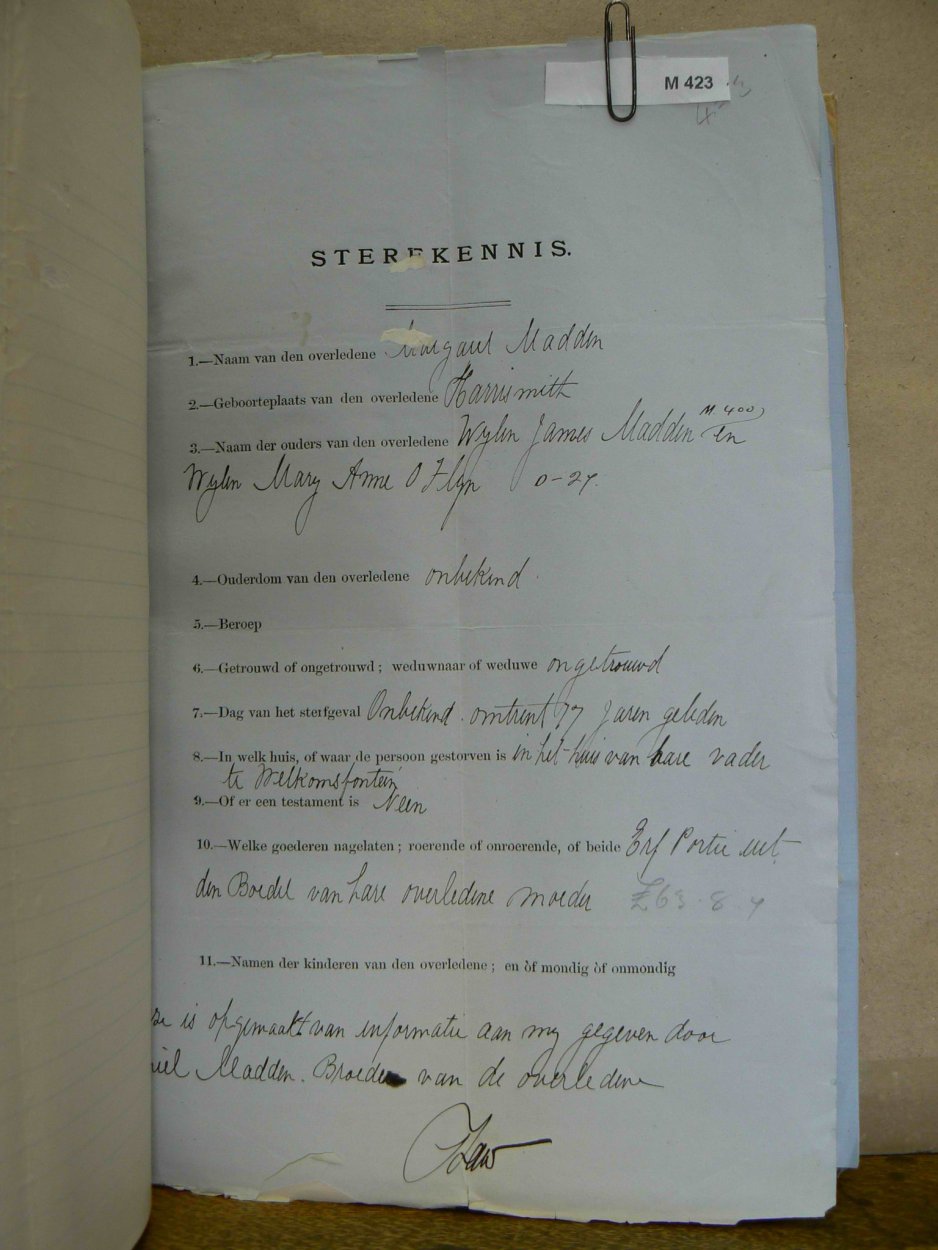 M 423
STERFKENNIS.
1.—Naam van den overledene Margaret Madden
2.—Geboorteplaats van den overledene Harrismith
M. 400
3.—Naam der ouders van den overledene Wylen James Madden en
Wylen Mary Anne O Flyn 0-27.
4.—Ouderdom van den overledene onbekend
5.—Beroep
6.—Getrouwd of ongetrouwd; weduwnaar of weduwe ongetrouwd
7.—Dag van het sterfgeval Onbekend. omtrent 17 jaren geleden
8.—In welk huis, of waar de persoon gestorven is in het huis van hare vader
te Welkomsfontein
9.—Of er een testament is Neen
10.—Welke goederen nagelaten; roerende of onroerende, of beide Erf Portie uit
den Boedel van hare overledene moeder £63.8.
11.—Namen der kinderen van den overledene; en òf mondig òf onmondig
is opgemaakt van informatie aan my gegeven door
iel Madden. Broeder van de overledene